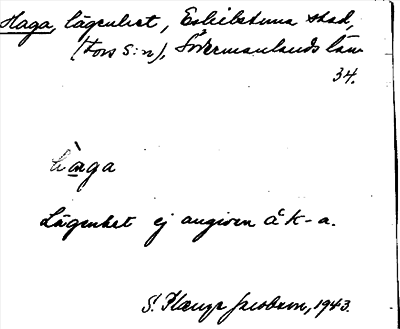 Haga, lägenhet, Eskilstuna stad,
(Fors S:n), Södermanlands län
34.
hàga
Lägenhet ej angiven å K-a.
S. Jacobson, 1943.